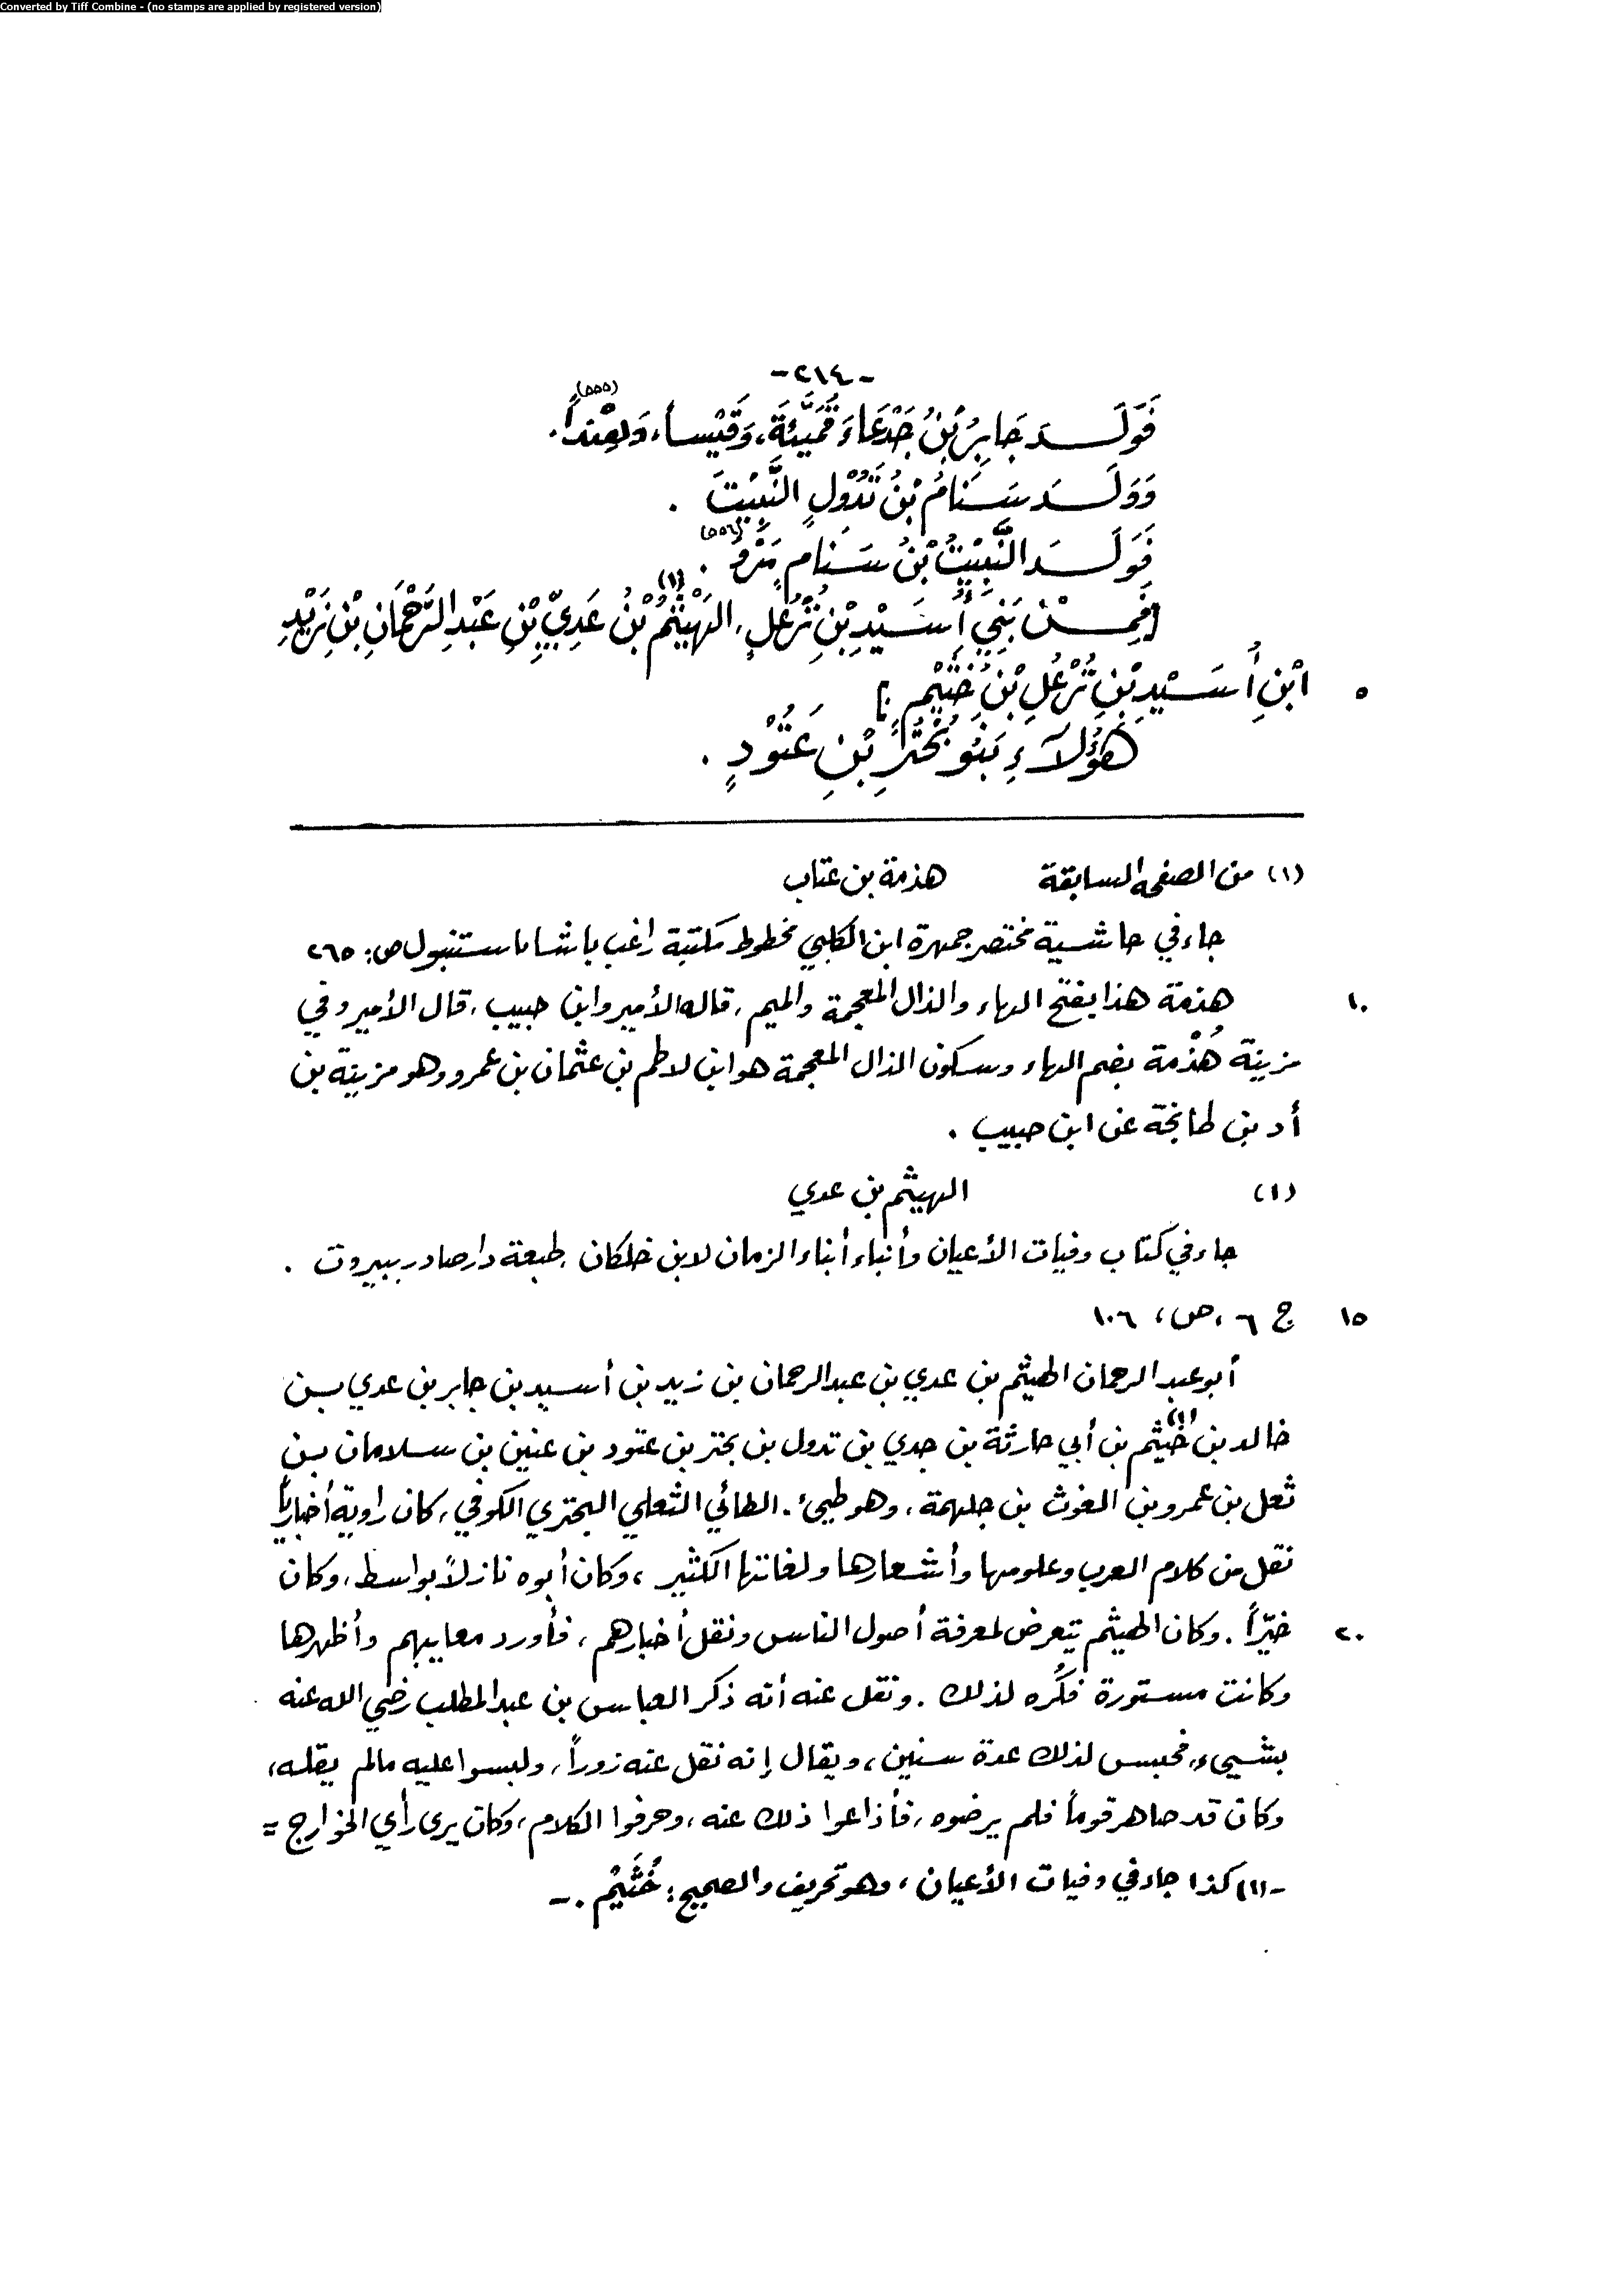 Converted by Tiff Combine - (no stamps are applied by registered version)
-٢١٤-
فَوَلَدَ جَابِرُ بْنُ جَدْعَاءَ قُمَيَّئَةَ، وَقَيْساً، وَهِنْداً (٥٥٥).
وَوَلَدَ سَنَامُ بْنُ تَدُوْلٍ النَّبِيْتَ .
فَوَلَدَ النَّبِيْتُ بْنُ سَنَامٍ (٥٥٦) .
[فَمِنْ بَنِي أُسَيْدِ بْنِ تُرْعُلٍ، الهَيْثَمُ (١) بْنُ عَدِيِّ بْنِ عَبْدِ الرَّحْمَانِ بْنِ زَيْدِ
٥ ابْنِ أُسَيْدِ بْنِ تُرْعُلِ بْنِ خُثَيْمٍ .]
هَؤُلَاءِ بَنُو بُحْتُرِ بْنِ عَتُوْدٍ .
(١) من الصفحة السابقة هذمة بن عتاب
جاء في حاشية مختصر جمهرة ابن الكلبي مخطوط مكتبة راغب باشا باستنبول ص: ٢٦٥
١٠ هذمة هذا بفتح الهاء والذال المعجمة والميم، قاله الأمير وابن حبيب، قال الأمير وفي
مزينة هُذْمة بضم الهاء وسكون الذال المعجمة هو ابن لاطم بن عثمان بن عمرو وهو مزينة بن
أد بن طابخة عن ابن حبيب .
(١) الهيثم بن عدي
جاء في كتاب وفيات الأعيان وأنباء أبناء الزمان لابن خلكان، طبعة دار صادر ببيروت .
١٥ ج ٦ ،ص، ١٠٦
أبو عبد الرحمان الهيثم بن عدي بن عبد الرحمان بن زيد بن أسيد بن جابر بن عدي بن
خالد بن خيثم (١) بن أبي حارثة بن جدي بن تدول بن بحتر بن عتود بن عنين بن سلامان بن
ثعل بن عمرو بن الغوث بن جلهمة، وهو طيئ. الطائي الثعلي البحتري الكوفي، كان راوية أخبارياً
نقل من كلام العرب وعلومها وأشعارها ولغاتها الكثير، وكان أبوه نازلاً بواسط، وكان
٢٠ خيّراً. وكان الهيثم يتعرض لمعرفة أصول الناس ونقل أخبارهم، فأورد معايبهم وأظهرها
وكانت مستورة فكُره لذلك. ونقل عنه أنه ذكر العباس بن عبد المطلب رضي الله عنه
بشيء، فحبس لذلك عدة سنين، ويقال إنه نقل عنه زوراً، ولبسوا عليه مالم يقله،
وكان قد صاهر قوماً فلم يرضوه، فأذاعوا ذلك عنه، وحرفوا الكلام، وكان يرى رأي الخوارج =
-(١) كذا جاء في وفيات الأعيان، وهو تحريف والصحيح: خُثَيْم .-